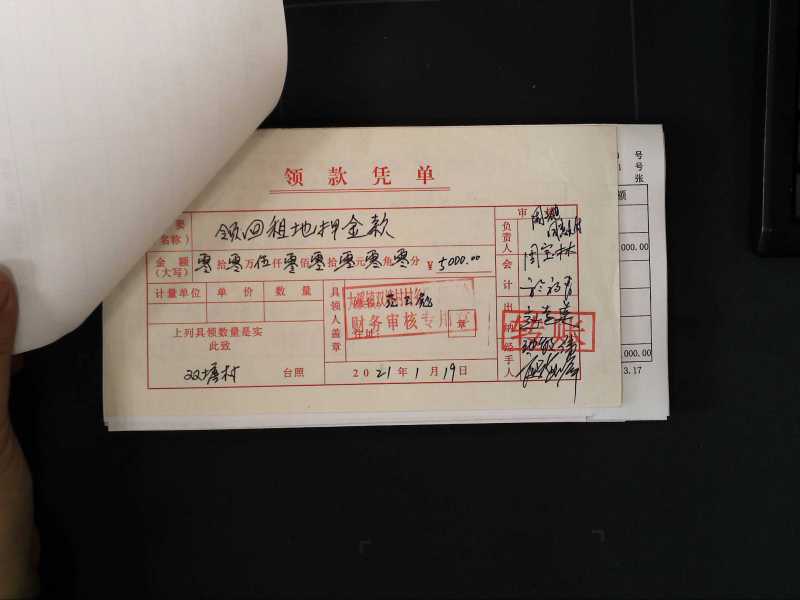 领款凭单
要
名称）
领回租地押金款
审
负责人
金额
（大写）
零拾零万伍仟零佰零拾零元零角零分
￥5000.00
周宝林
会计
计量单位 单价 数量
具领人盖章
财务审核专用章
出纳
上列具领数量是实
此致
经手人
双塘村 台照
2021年1月19日
号
号
张
额
000.00
000.00
3.17